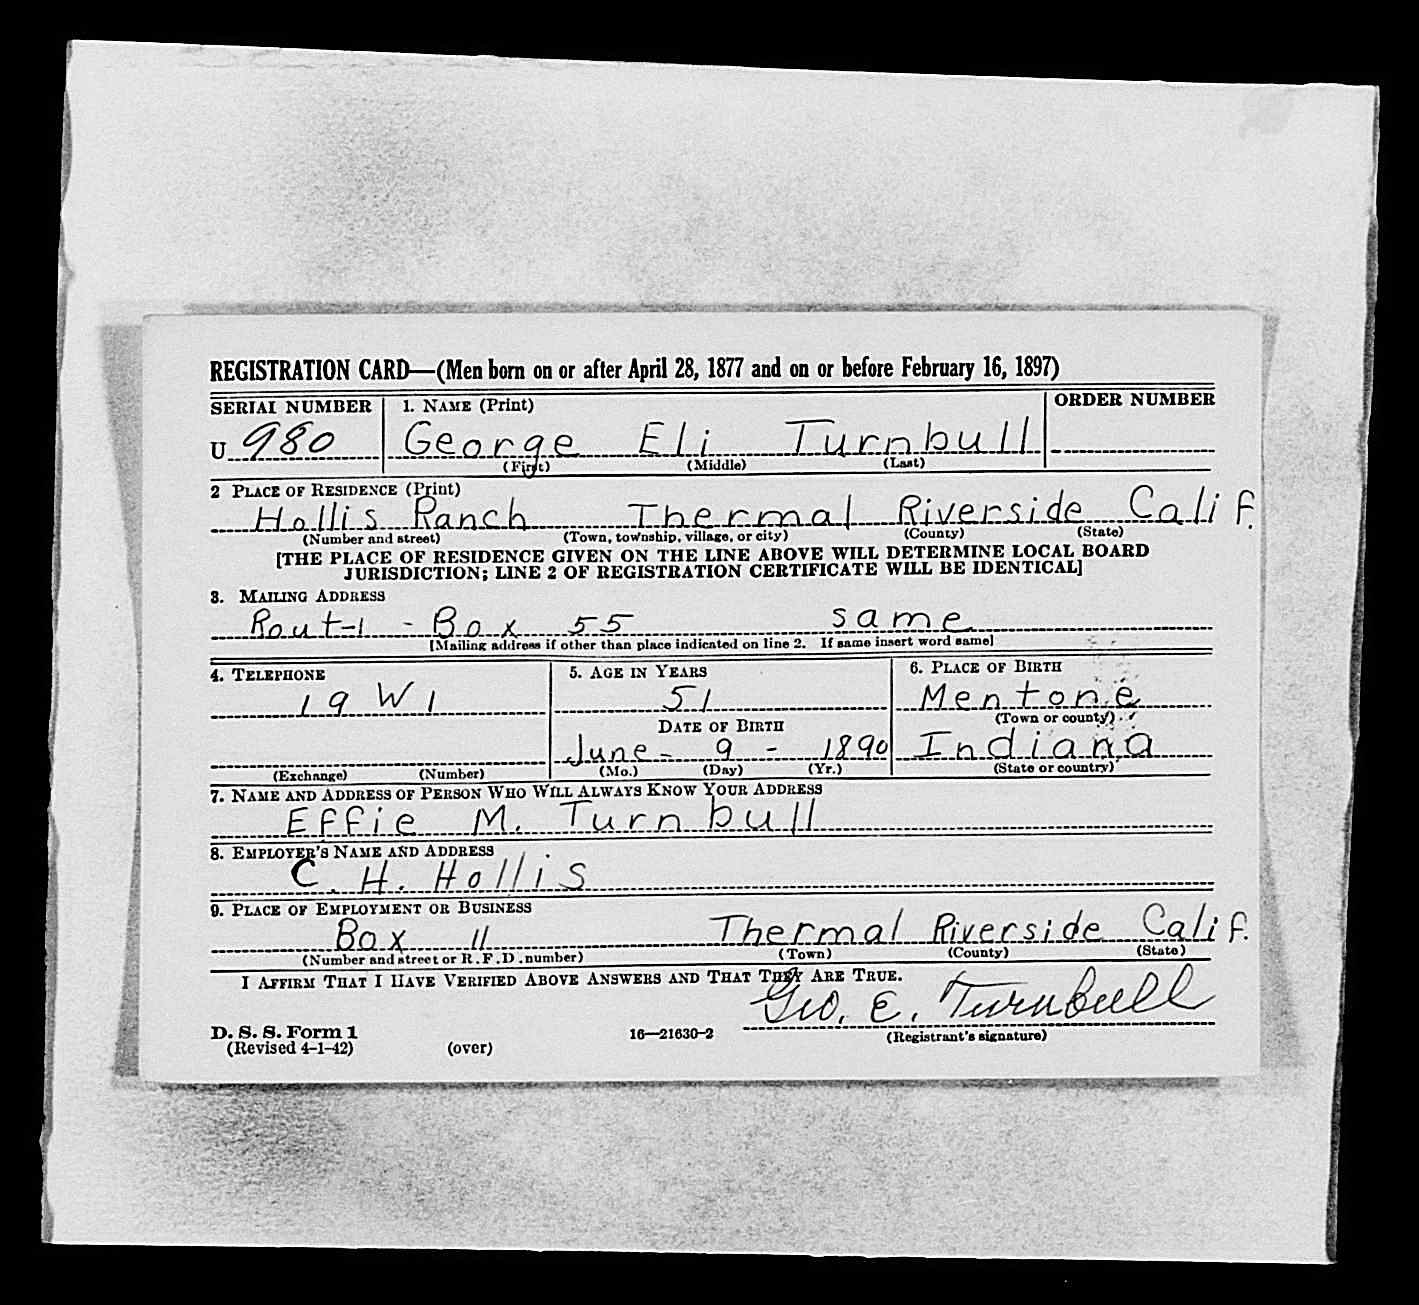 REGISTRATION CARD—(Men born on or after April 28, 1877 and on or before February 16, 1897)
SERIAL NUMBER 1. NAME (Print) ORDER NUMBER
U 980 George Eli Turnbull
(First) (Middle) (Last)
2 PLACE OF RESIDENCE (Print)
Hollis Ranch Thermal Riverside Calif.
(Number and street) (Town, township, village, or city) (County) (State)
[THE PLACE OF RESIDENCE GIVEN ON THE LINE ABOVE WILL DETERMINE LOCAL BOARD
JURISDICTION; LINE 2 OF REGISTRATION CERTIFICATE WILL BE IDENTICAL]
3. MAILING ADDRESS
Rout-1 - Box 55 same
[Mailing address if other than place indicated on line 2. If same insert word same]
4. TELEPHONE 5. AGE IN YEARS 6. PLACE OF BIRTH
19 W 1 51 Mentone
DATE OF BIRTH (Town or county)
June - 9 - 1890 Indiana
(Exchange) (Number) (Mo.) (Day) (Yr.) (State or country)
7. NAME AND ADDRESS OF PERSON WHO WILL ALWAYS KNOW YOUR ADDRESS
Effie M. Turnbull
8. EMPLOYER'S NAME AND ADDRESS
C. H. Hollis
9. PLACE OF EMPLOYMENT OR BUSINESS
Box 11 Thermal Riverside Calif.
(Number and street or R.F.D. number) (Town) (County) (State)
I AFFIRM THAT I HAVE VERIFIED ABOVE ANSWERS AND THAT THEY ARE TRUE.
Geo. E. Turnbull
D. S. S. Form 1 16—21630-2 (Registrant's signature)
(Revised 4-1-42) (over)